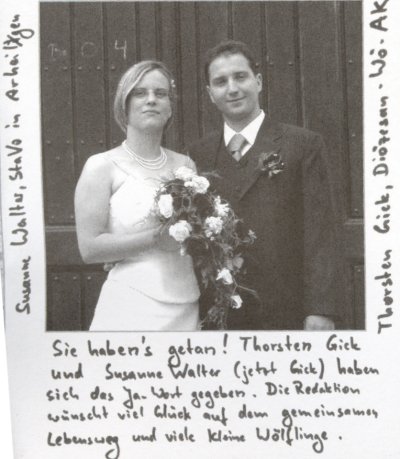 Susanne Walter, StaVo in Arheilgen
Thorsten Gick, Diözesan-Wö-AK
Sie haben's getan! Thorsten Gick
und Susanne Walter (jetzt Gick) haben
sich das Ja-Wort gegeben. Die Redaktion
wünscht viel Glück auf dem gemeinsamen
Lebensweg und viele kleine Wölflinge.